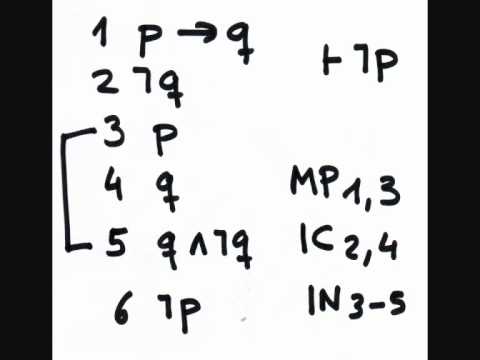 1 p → q ⊢ ¬p
2 ¬q
3 p
4 q MP 1,3
5 q ∧ ¬q IC 2,4
6 ¬p IN 3-5